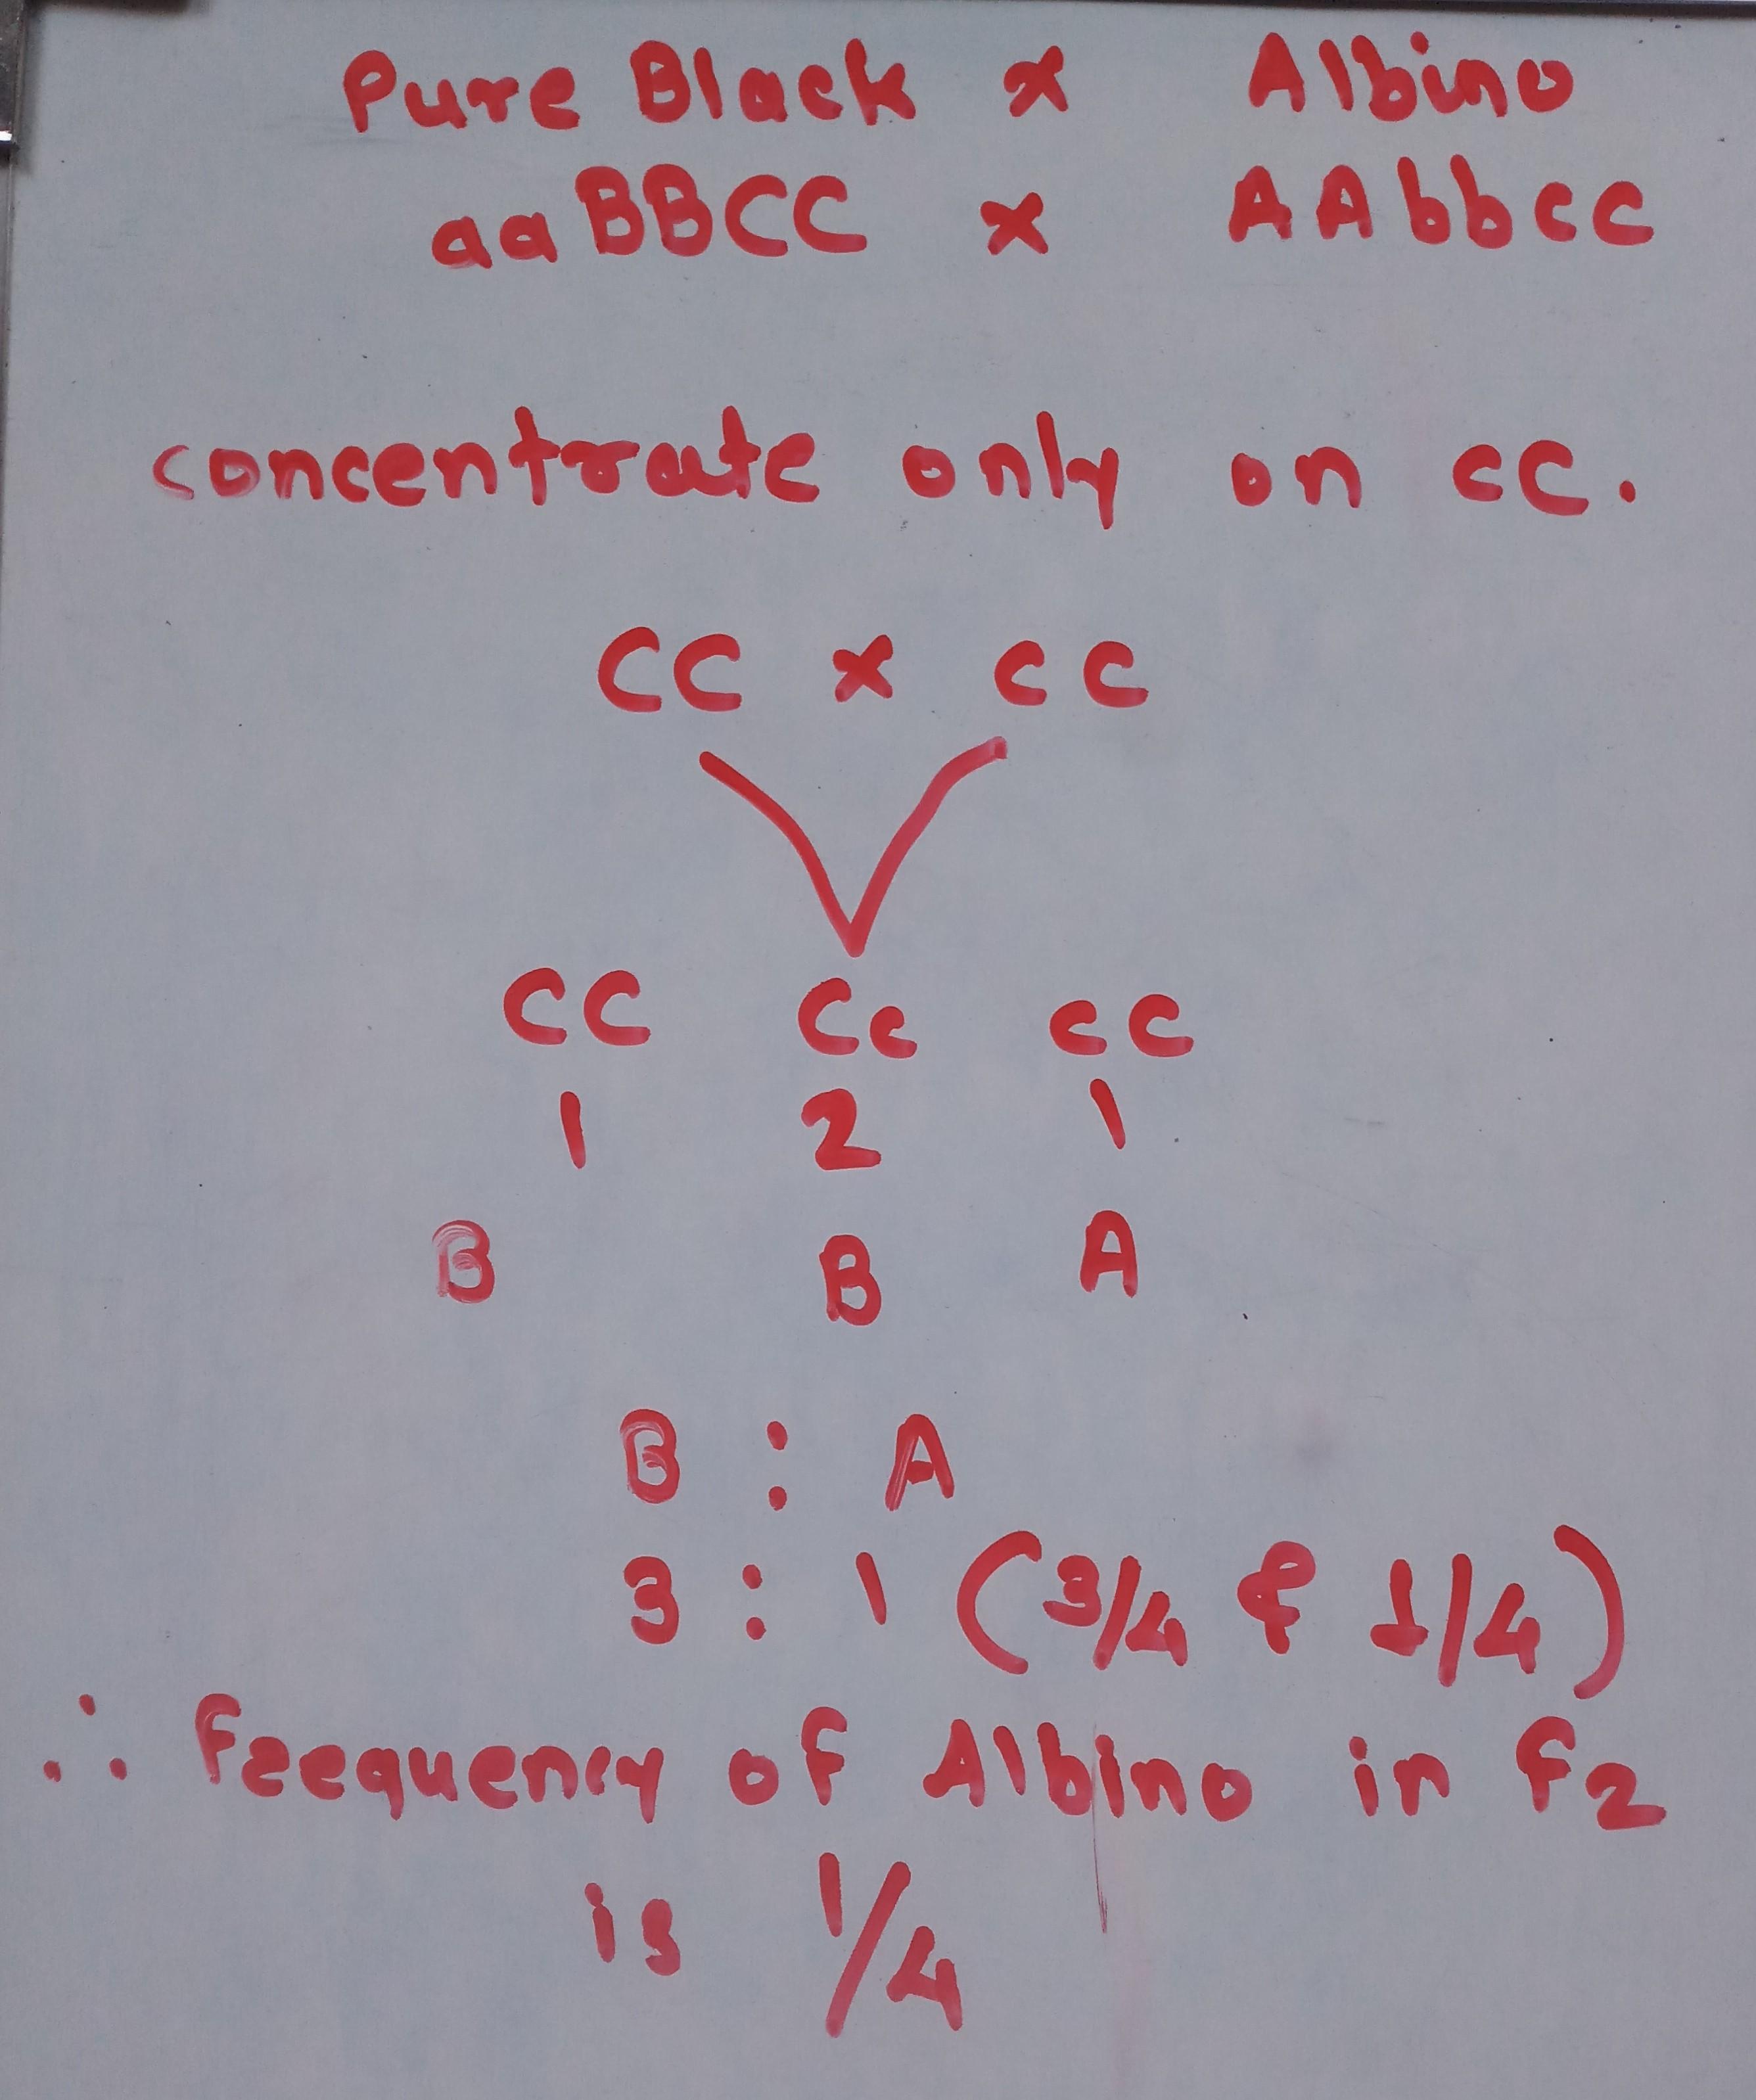 Pure Black x Albino
aaBBCC x AAbbcc
concentrate only on cc.
CC x cc
CC Cc cc
1 2 1
B B A
B : A
3 : 1 (3/4 & 1/4)
∴ frequency of Albino in f2
is 1/4